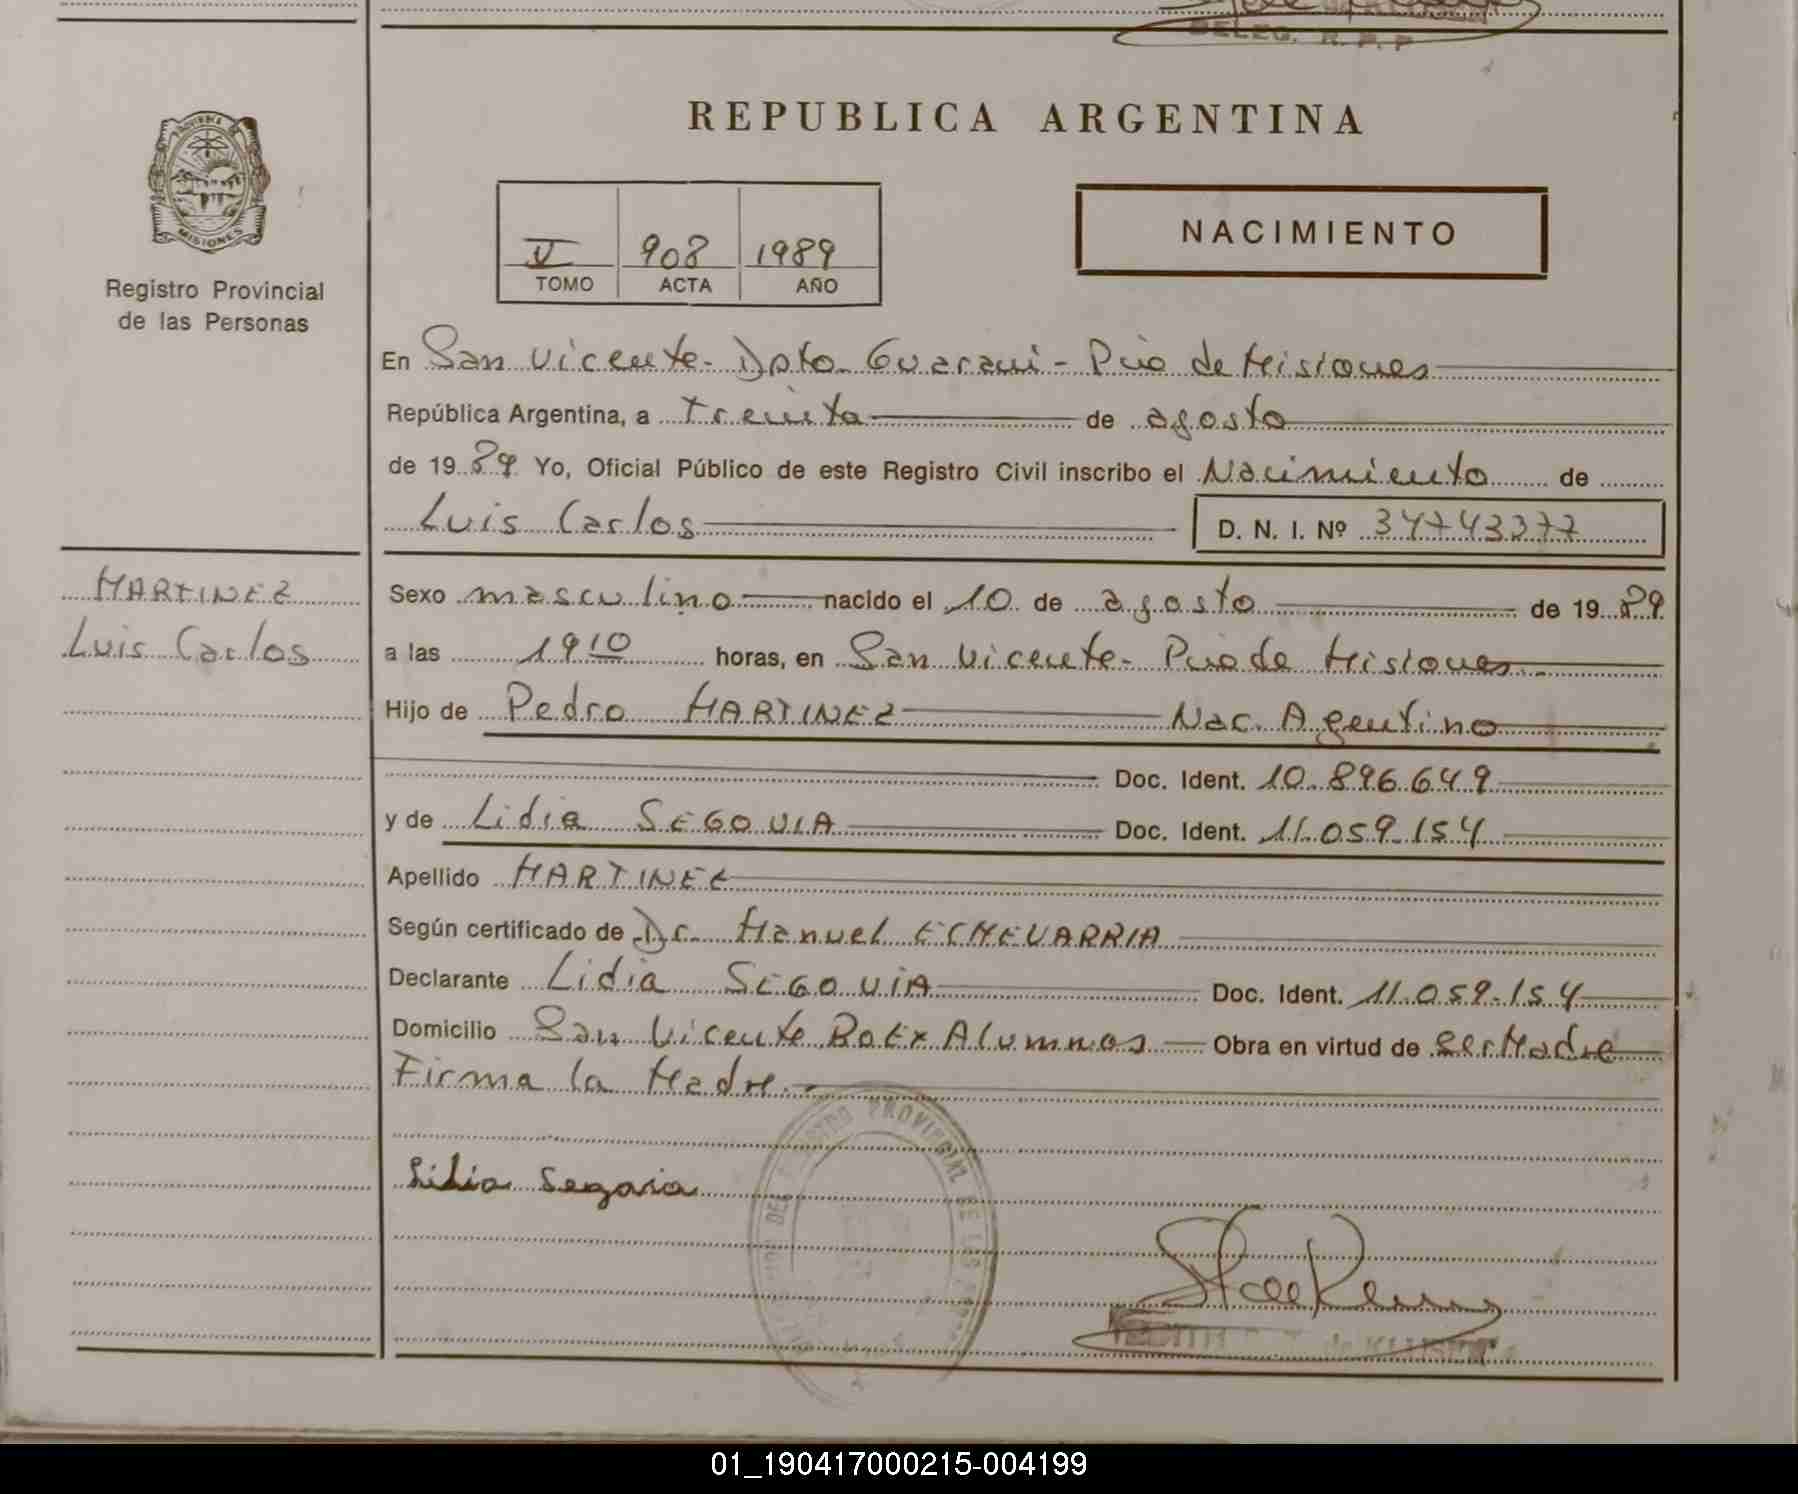 DELEG. R. P. P
PROVINCIA DE
MISIONES
Registro Provincial
de las Personas
REPUBLICA ARGENTINA
V 908 1989
TOMO ACTA AÑO
NACIMIENTO
En San Vicente - Dpto Guarani - Pcia de Misiones
República Argentina, a treinta de agosto
de 19 89 Yo, Oficial Público de este Registro Civil inscribo el Nacimiento de
Luis Carlos D. N. I. Nº 34743377
MARTINEZ
Luis Carlos
Sexo masculino nacido el 10 de agosto de 19 89
a las 19 10 horas, en San Vicente - Pcia de Misiones
Hijo de Pedro MARTINEZ Nac. Agentino
Doc. Ident. 10.896.649
y de Lidia SEGOVIA Doc. Ident. 11.059.154
Apellido MARTINEZ
Según certificado de Dr. Manuel ECHEVARRIA
Declarante Lidia SEGOVIA Doc. Ident. 11.059.154
Domicilio San Vicente Bo Ex Alumnos Obra en virtud de Ser Madre
Firma la Madre.
PROVINCIAL DE LAS
Lidia Segovia
01_190417000215-004199